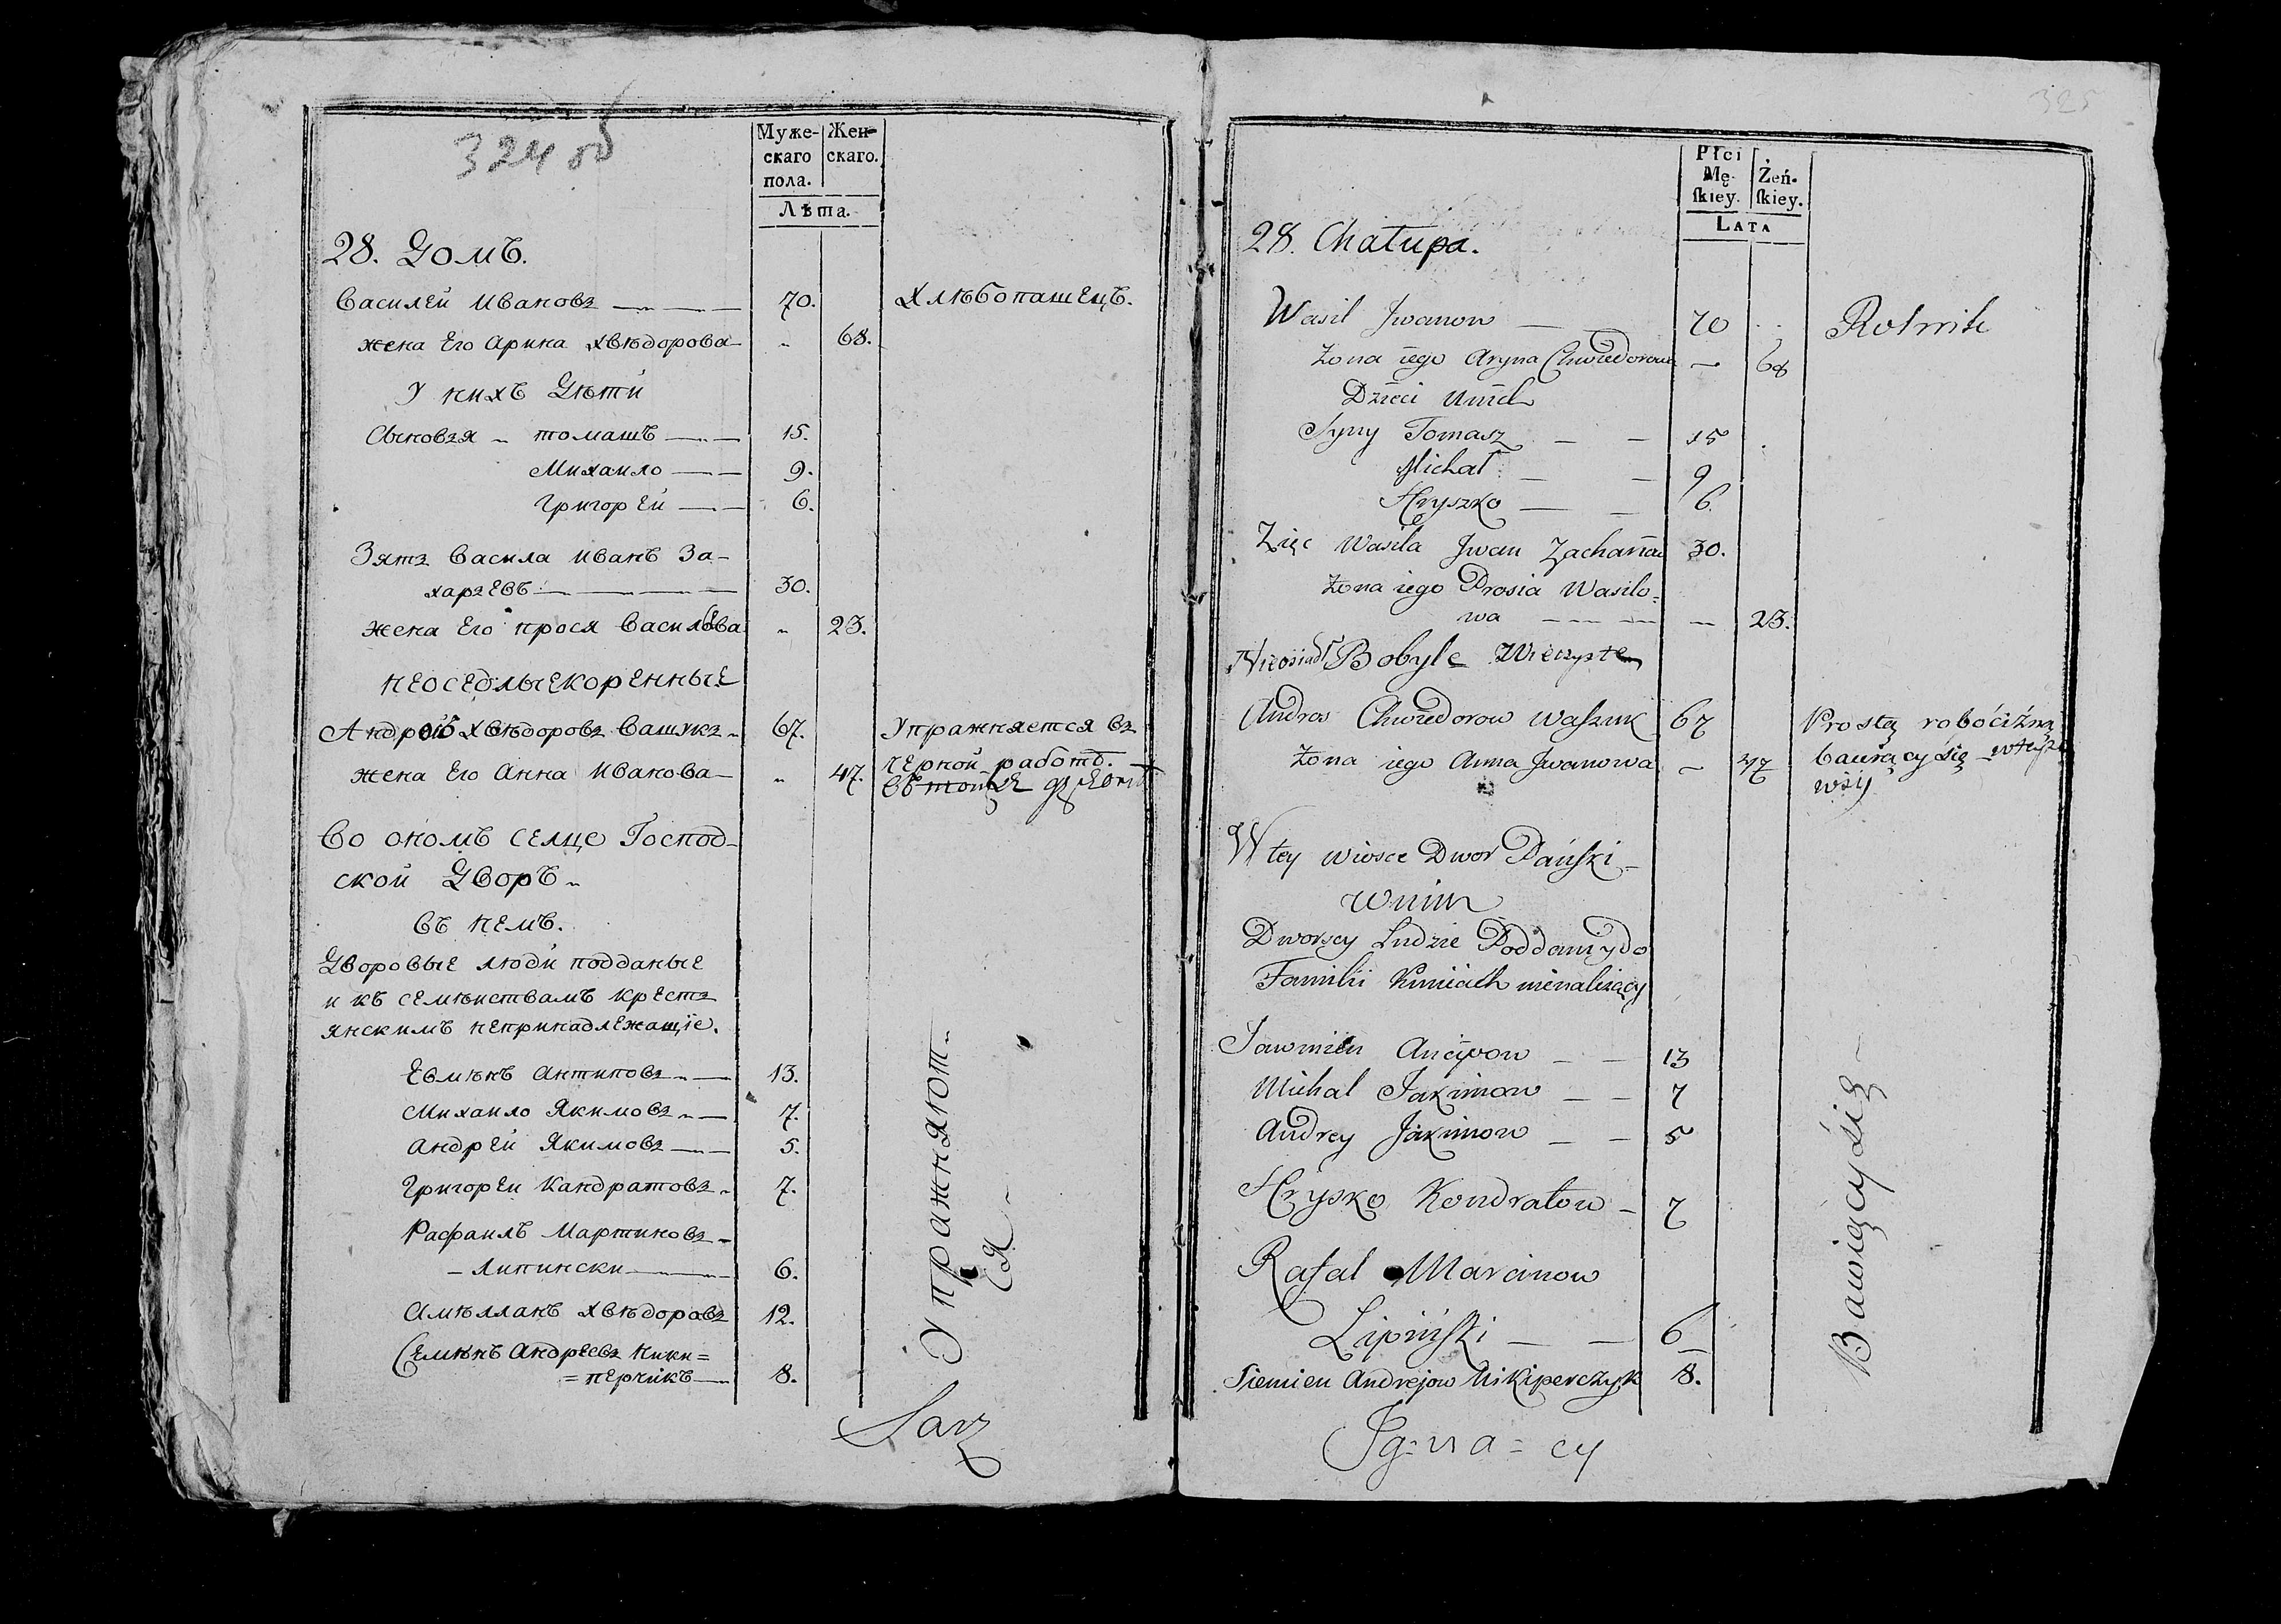 324 об
Муже- Жен-
скаго скаго.
пола.
Лѣта.
28. Домъ.
Василей Ивановъ 70. Хлѣбопашецъ.
жена Его Арина Хвѣдорова 68.
У нихъ Дѣти
Сыновья томашъ 15.
Михаило 9.
Григорей 6.
Зять Васила Иванъ За-
харъевъ 30.
жена Его прося Василёва 23.
неоседлые коренные
Андрей Хвѣдоровъ Вашукъ 67. Упражняется въ
черной работѣ.
жена Его Анна Иванова 47.
Въ той же
Во ономъ селце Господ-
ской Дворъ
въ немъ.
Дворовые люди подданые
и къ семѣиствамъ крестъ
янскимъ непринадлежащіе.
Евмѣнъ Антиповъ 13.
Михаило Якимовъ 7.
Андрей Якимовъ 5.
Григореи Кандратовъ 7.
Рафаилъ Мартиновъ
Липински 6.
Амѣллянъ Хвѣдоровъ 12.
Семѣнъ Андреевъ Ники=
=перчикъ 8.
Упражняют-
ся
Sarz
325
Płci
Mę- Żeń-
ſkiey. ſkiey.
LATA
28. Chałupa.
Wasil Jwanow 70 Rolnik
Żona iego Aryna Chwiedorowa 68
Dzieci unich
Syny Tomasz 15
Michał 9
Hryszko 6.
Zięć Wasila Jwan Zachariasz 30.
Żona iego Prosia Wasilo=
wa 23.
Nieosiadł Bobyle Wieczyste
Andros Chwiedorow Waszuk 67 Prostą robócizną
Żona iego Anna Jwanowa 47 bawiący się wteyże
wsi
W tey wiosce Dwor Pański
wnim
Dworscy Ludzie Poddani y do
Familii Kmiecich nienależący
Jawmien Ancipow 13
Michał Jakimow 7
Andrey Jakimow 5
Hrysko Kondratow 7
Rafał Marcinow
Lipińſki 6
Siemien Andrejow Nikiperczyk 8.
Bawięcy się
Jg=na=cy